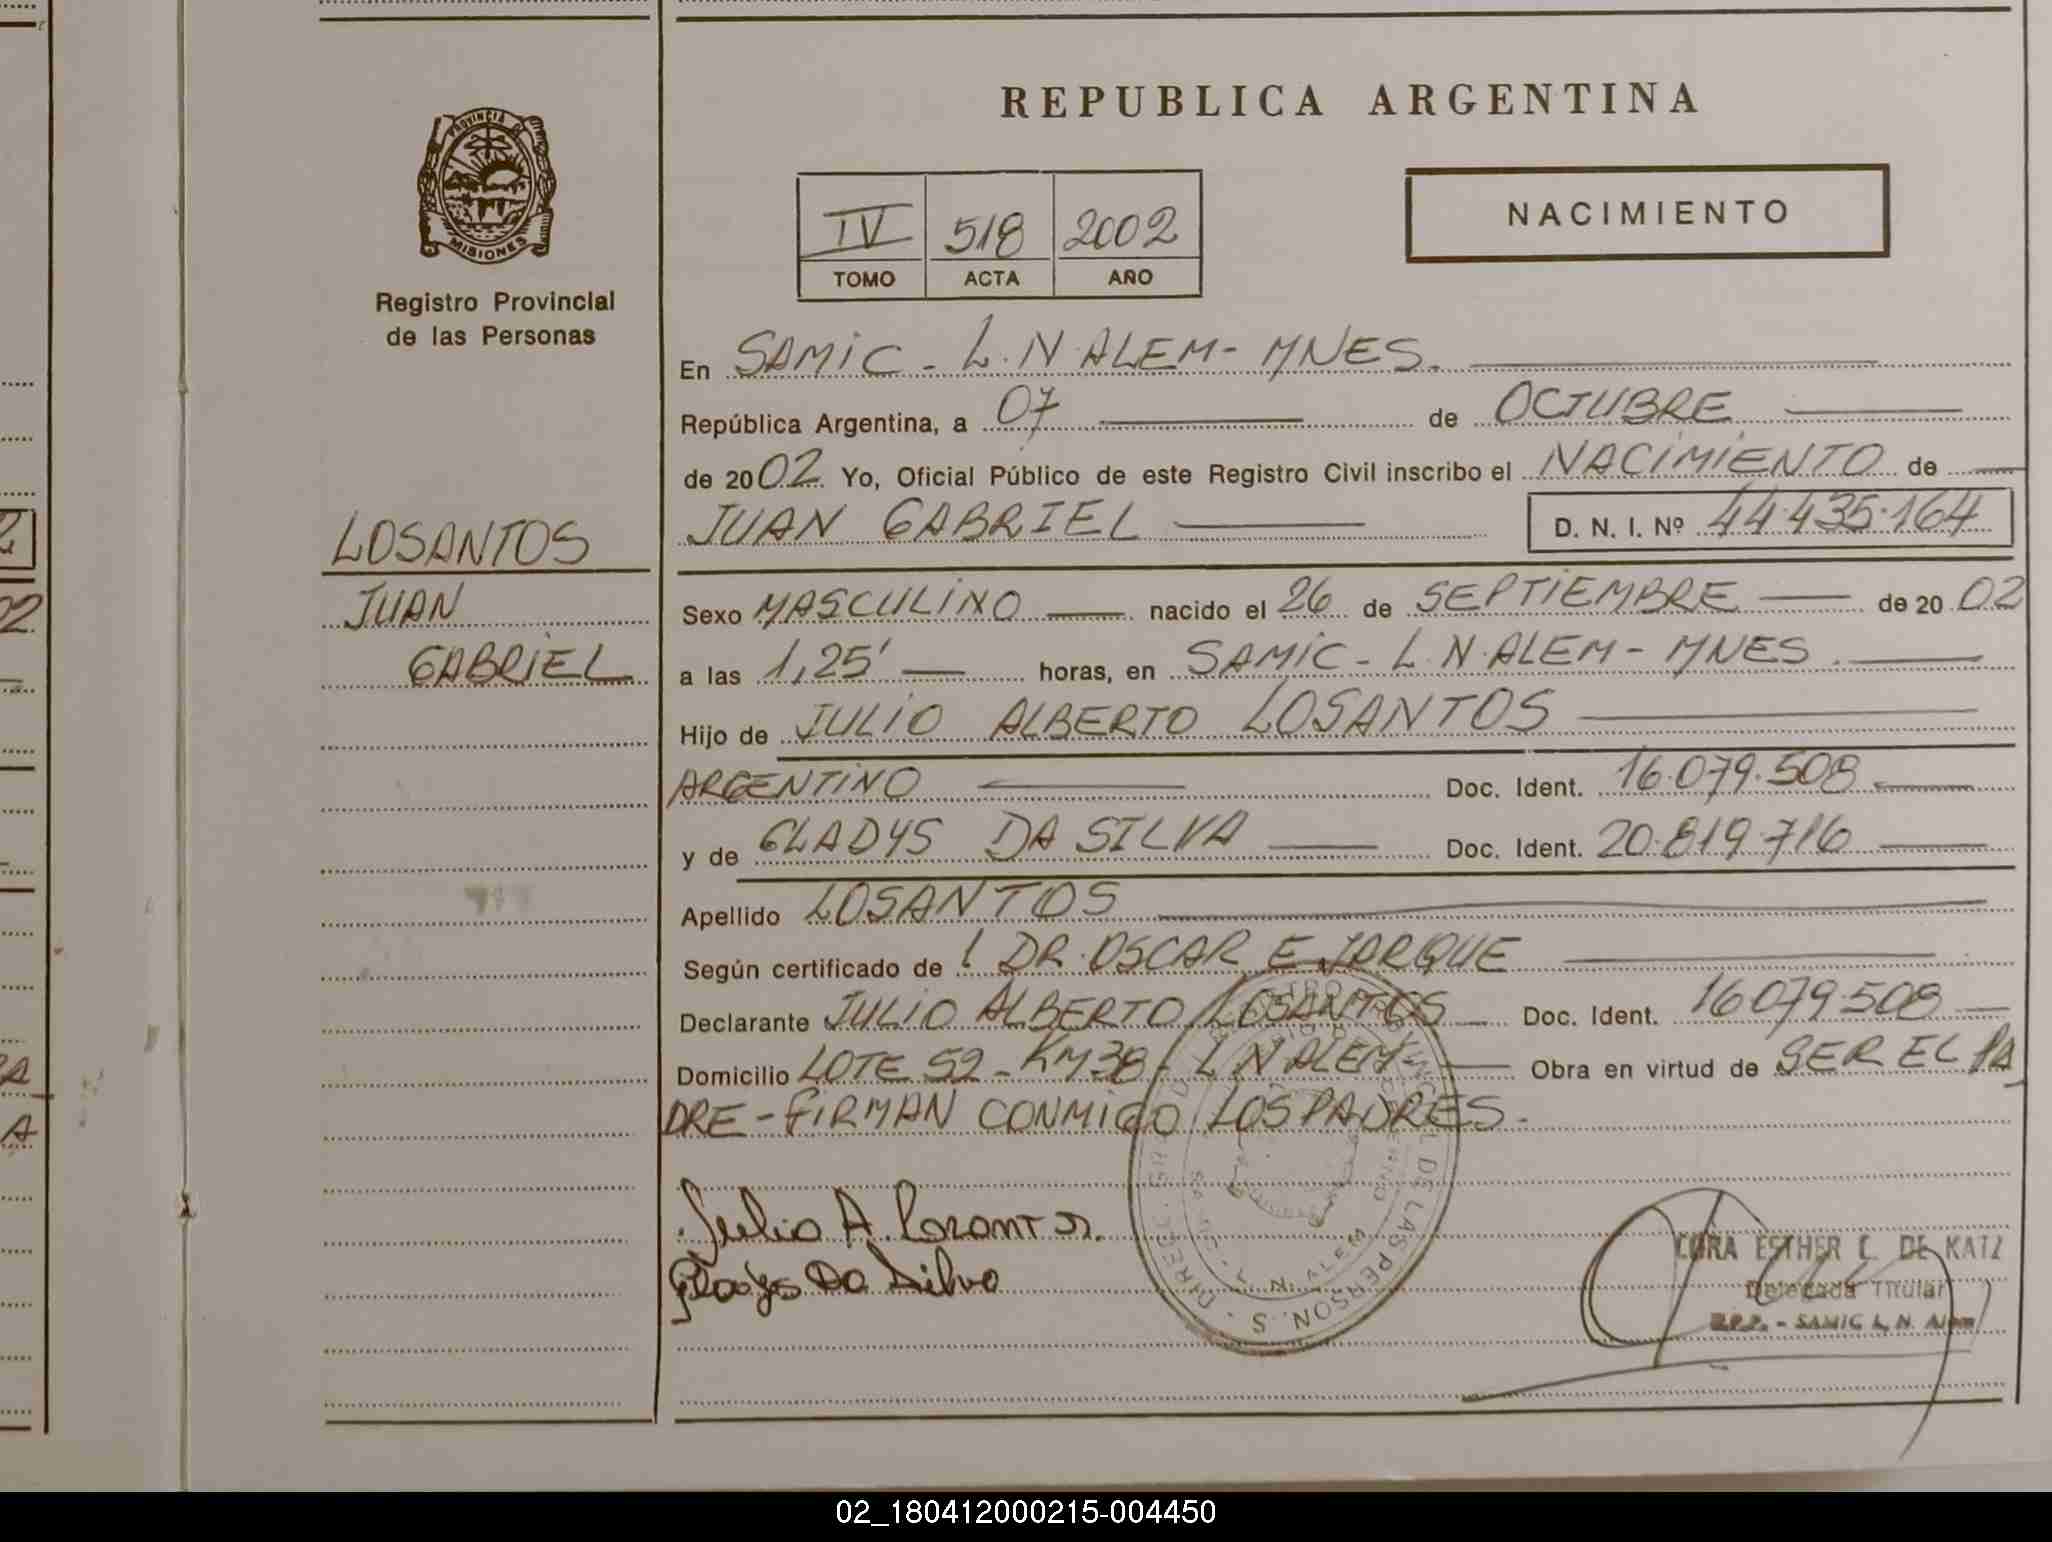 REPUBLICA ARGENTINA
PROVINCIA DE
MISIONES
Registro Provincial
de las Personas
IV 518 2002
TOMO ACTA AÑO
NACIMIENTO
En SAMIC - L.N.ALEM - MNES.
República Argentina, a 07 de OCTUBRE
de 2002 Yo, Oficial Público de este Registro Civil inscribo el NACIMIENTO de
JUAN GABRIEL D. N. I. Nº 44.435.164
LOSANTOS
JUAN
GABRIEL
Sexo MASCULINO nacido el 26 de SEPTIEMBRE de 2002
a las 1,25' horas, en SAMIC - L.N.ALEM - MNES.
Hijo de JULIO ALBERTO LOSANTOS
ARGENTINO Doc. Ident. 16.079.508
y de GLADYS DA SILVA Doc. Ident. 20.819.716
Apellido LOSANTOS
Según certificado de DR. OSCAR E JARQUE
Declarante JULIO ALBERTO LOSANTOS Doc. Ident. 16079.508
Domicilio LOTE 52 - KM38 - L N ALEM Obra en virtud de SER EL PA
DRE - FIRMAN CONMIGO LOS PADRES.
Julio A. Losantos.
Gladys Da Silva
CORA ESTHER C. DE KATZ
Delegada Titular
R.P.P. - SAMIC L. N. Alem
02_180412000215-004450